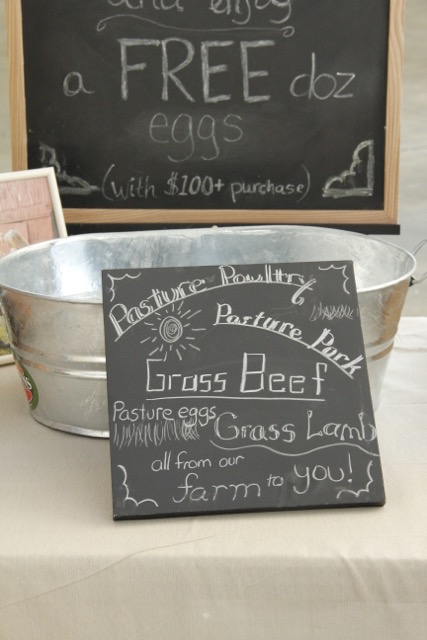 and enjoy
a FREE doz
eggs
(with $100+ purchase)
Pasture Poultry
Pasture Pork
Grass Beef
Pasture eggs
Grass Lamb
all from our
farm to you!